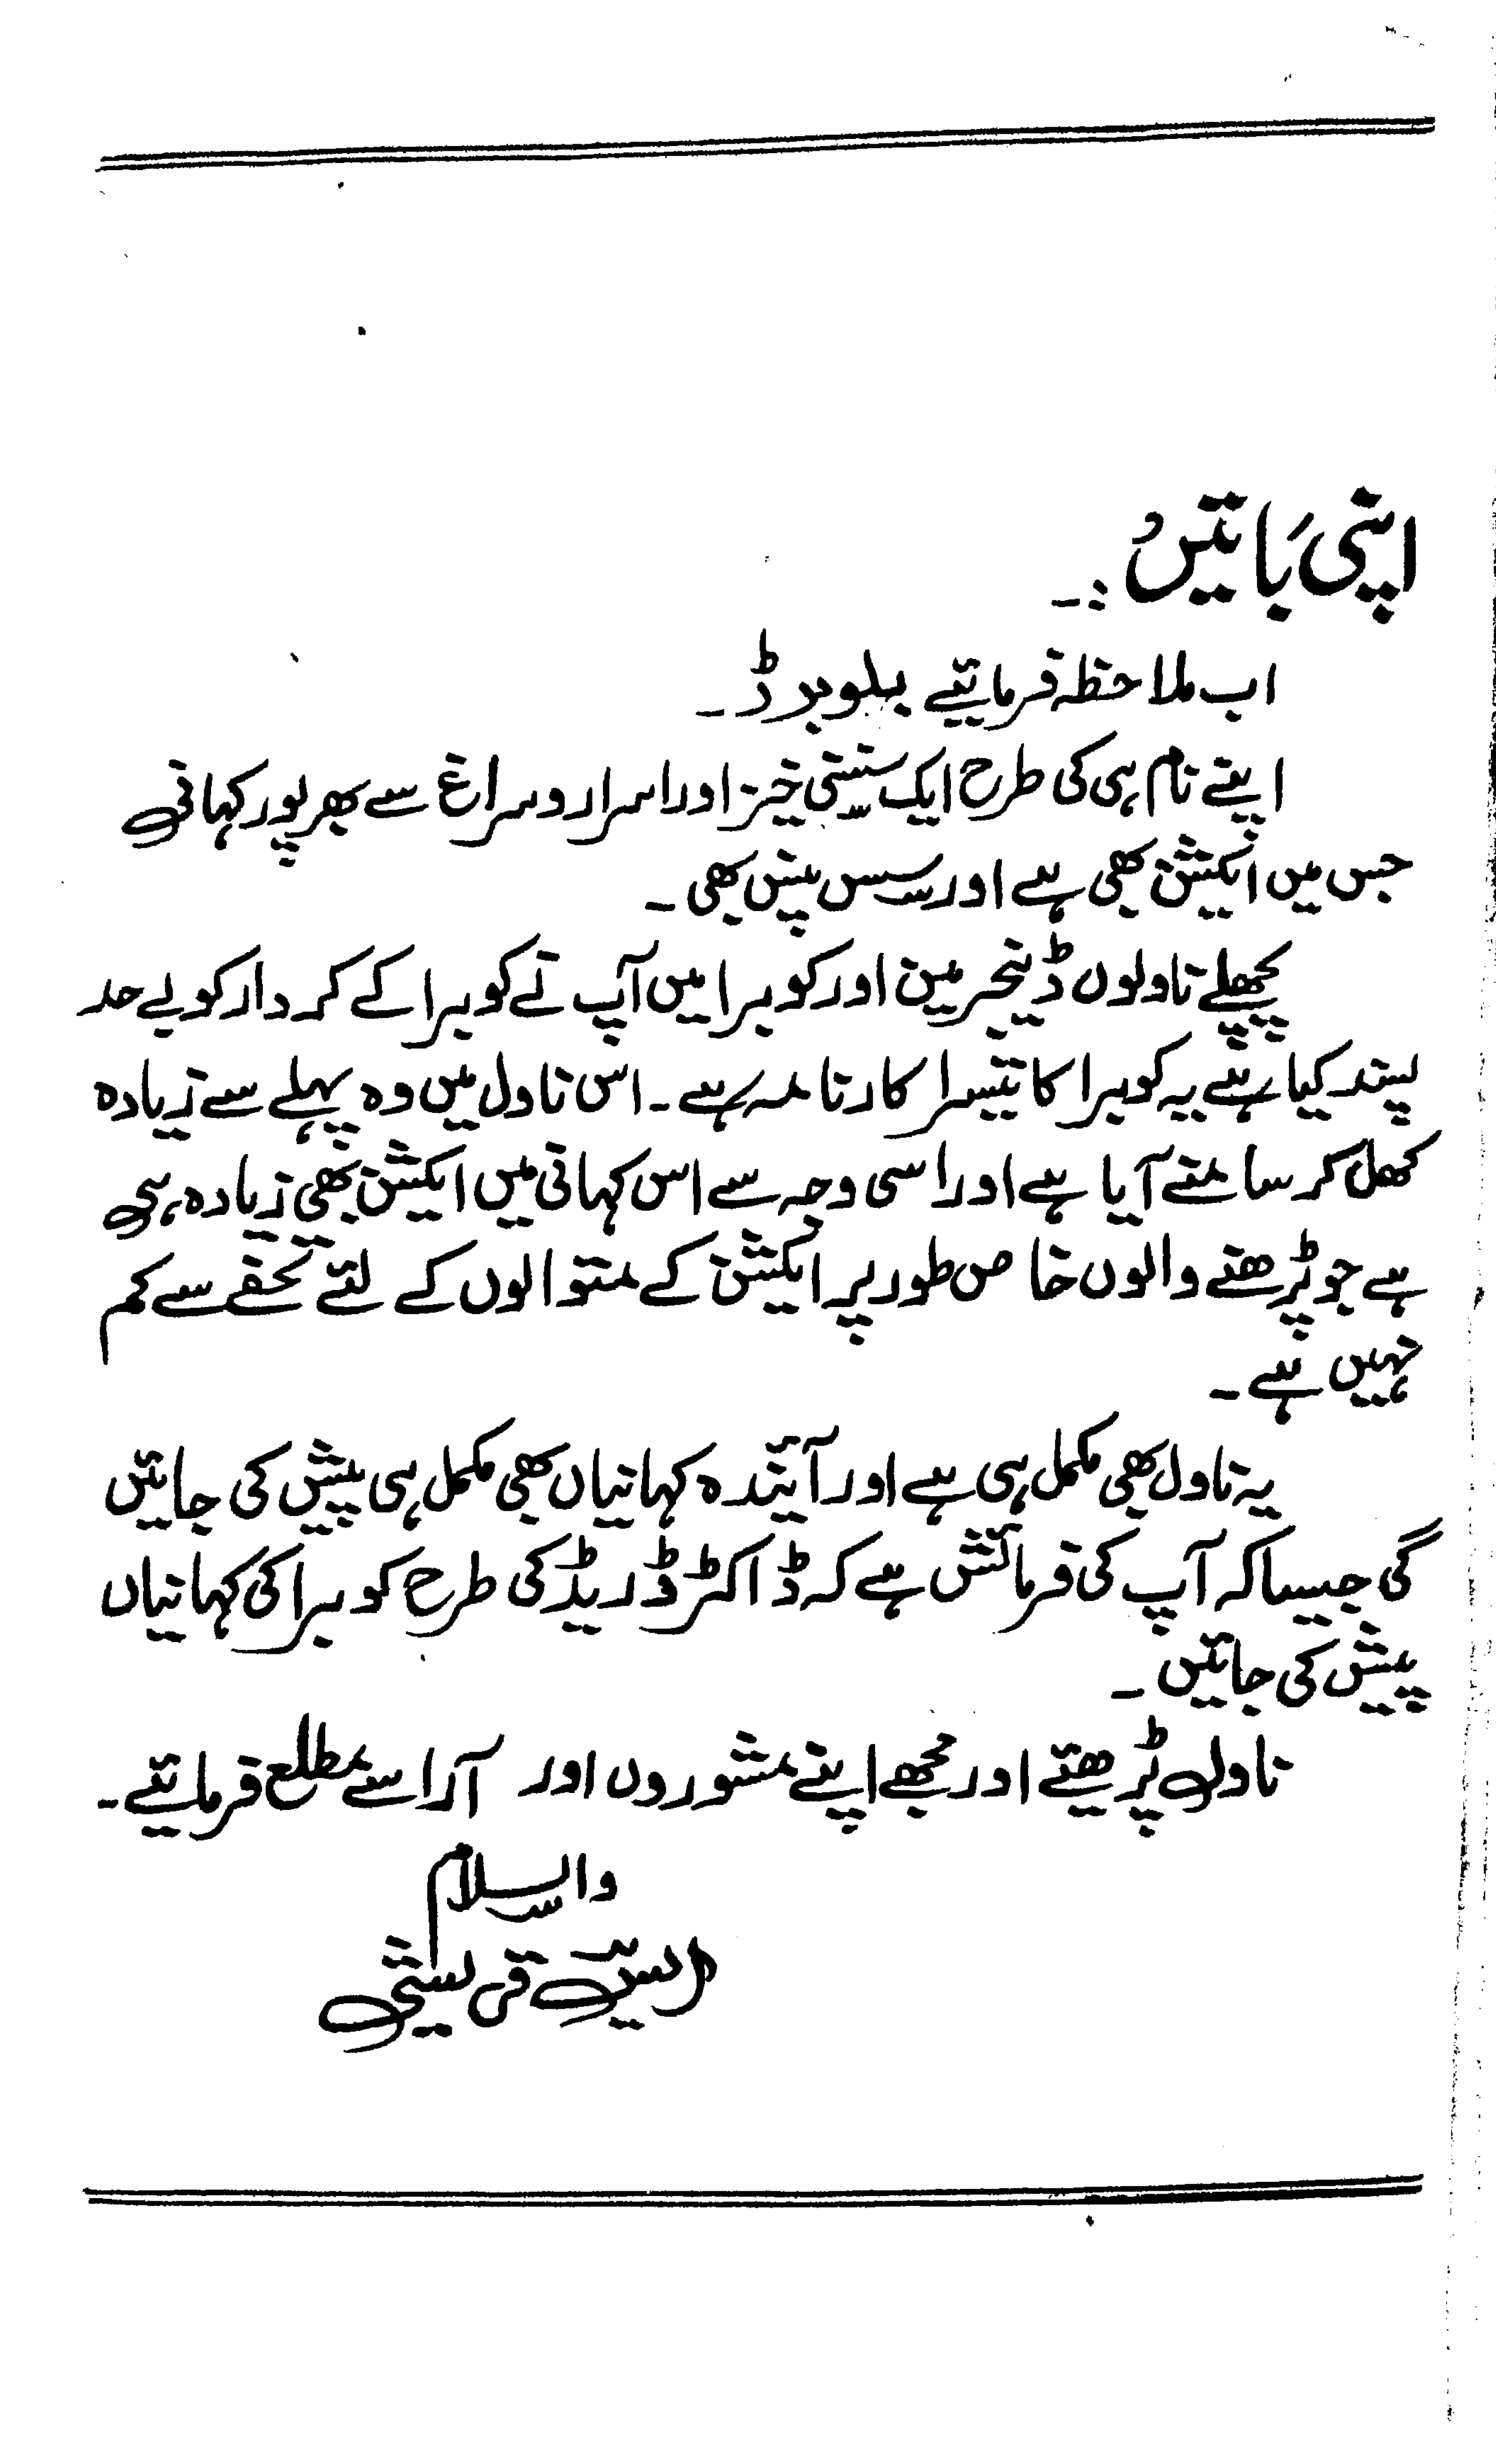 اپنی باتیں :-
اب ملاحظہ فرمائیے بلو برڈ ۔
اپنے نام ہی کی طرح ایک سنسنی خیز اور اسرار و سراغ سے بھرپور کہانی
جس میں ایکشن بھی ہے اور سسس پنس بھی ۔
پچھلے ناولوں ڈینجر مین اور کوبرا میں آپ نے کوبرا کے کردار کو بے حد
پسند کیا ہے یہ کوبرا کا تیسرا کارنامہ ہے ۔ اس ناول میں وہ پہلے سے زیادہ
کھل کر سامنے آیا ہے اور اسی وجہ سے اس کہانی میں ایکشن بھی زیادہ ہی
ہے جو پڑھنے والوں خاص طور پر ایکشن کے متوالوں کے لئے تحفے سے کم
نہیں ہے ۔
یہ ناول بھی مکمل ہی ہے اور آئندہ کہانیاں بھی مکمل ہی پیش کی جائیں
گی جیسا کہ آپ کی فرمائش ہے کہ ڈاکٹر ڈریڈ کی طرح کوبرا کی کہانیاں
پیش کی جائیں ۔
ناول پڑھئے اور مجھے اپنے مشوروں اور آرا سے مطلع فرمائیے ۔
والسلام
قریشی